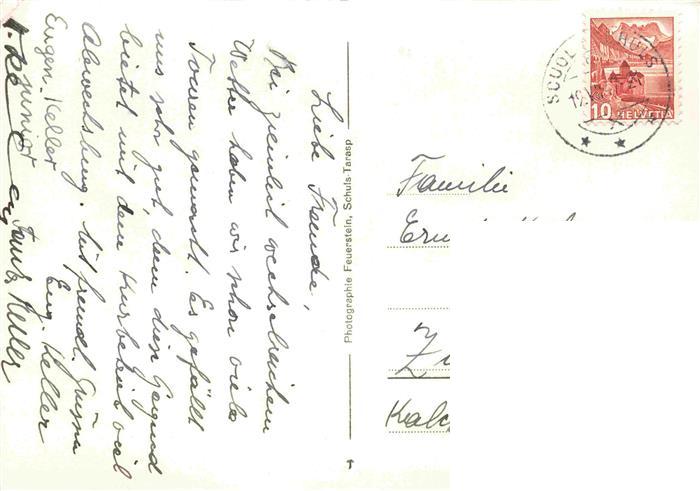 Liebe Freunde,
Bei ziemlich wechselreichem
Wetter haben wir schon viele
Touren gemacht. Es gefällt
uns sehr gut, denn diese Gegend
bietet mit dem Kurbetrieb viel
Abwechslung. Mit freundl. Grüssen
Eugen Keller Eug. Keller
junior
Keller
Photographie Feuerstein, Schuls-Tarasp
SCUOL SCHULS
10 HELVETIA
Familie